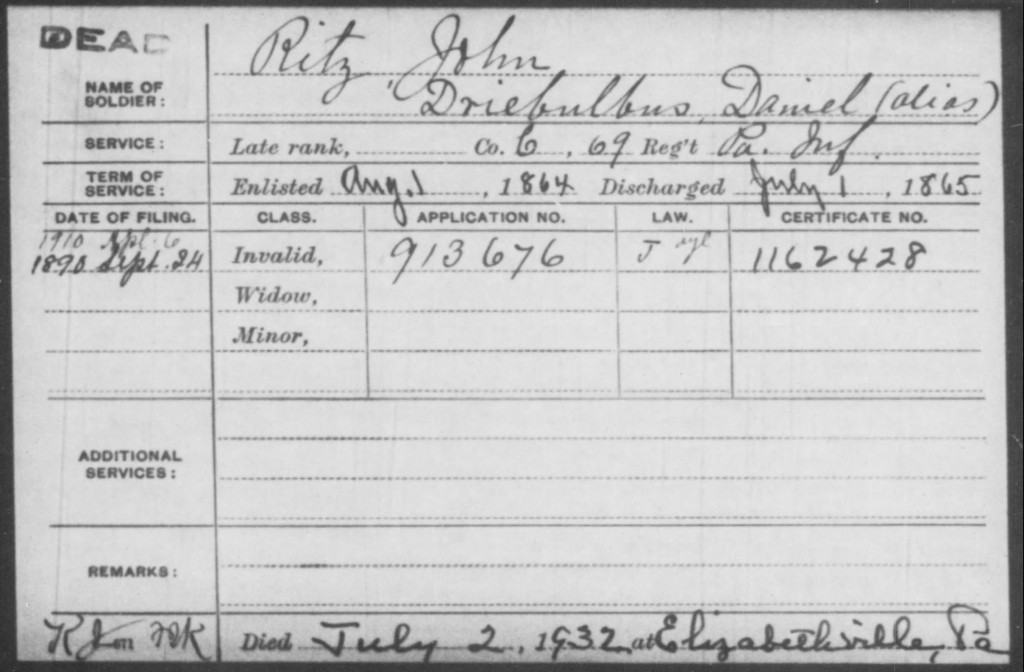 DEAD
NAME OF SOLDIER:
Ritz John
Driebulbus, Daniel (alias)
SERVICE: Late rank, Co. C, 69 Reg't Pa. Inf.
TERM OF SERVICE: Enlisted Aug. 1, 1864 Discharged July 1, 1865
DATE OF FILING. CLASS. APPLICATION NO. LAW. CERTIFICATE NO.
1910 Apl. 6
1890 Sept. 24 Invalid, 913676 J 1162428
Widow,
Minor,
ADDITIONAL SERVICES:
REMARKS:
Died July 2, 1932 at Elizabethville, Pa